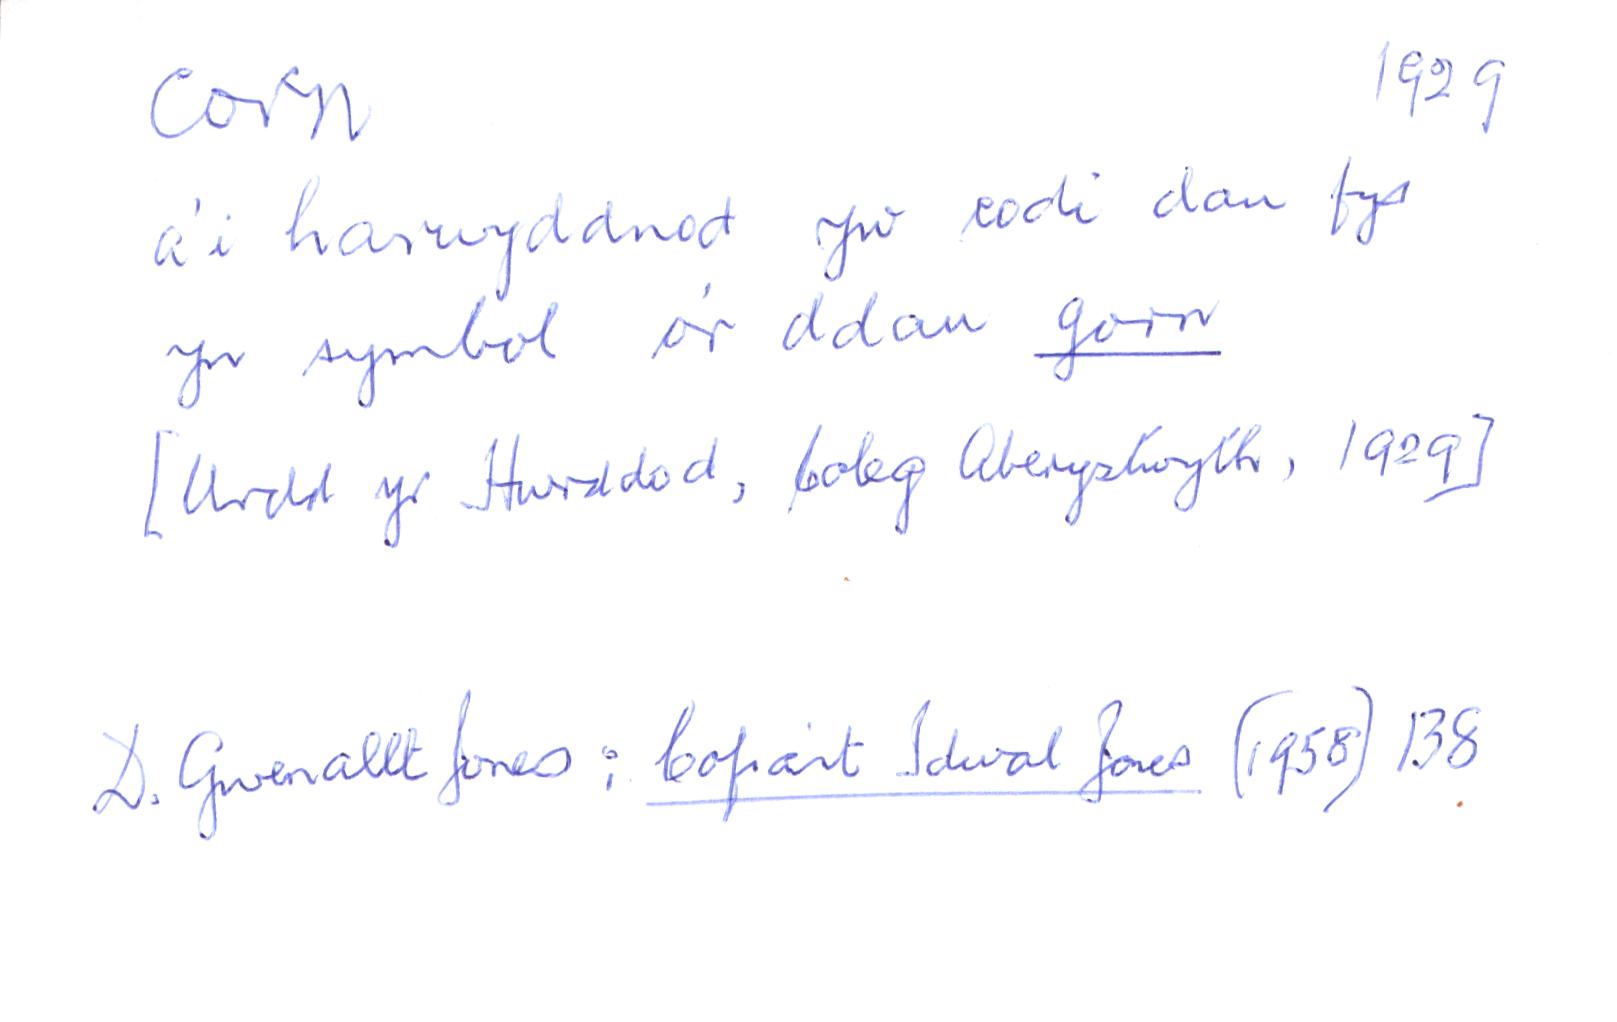 Corn 1929
a'i harwyddnod yw codi dau fys
yn symbol o'r ddau gorn
[Urdd yr Hwrddod, Coleg Aberystwyth, 1929]
D. Gwenallt Jones: Cofiant Idwal Jones (1958) 138